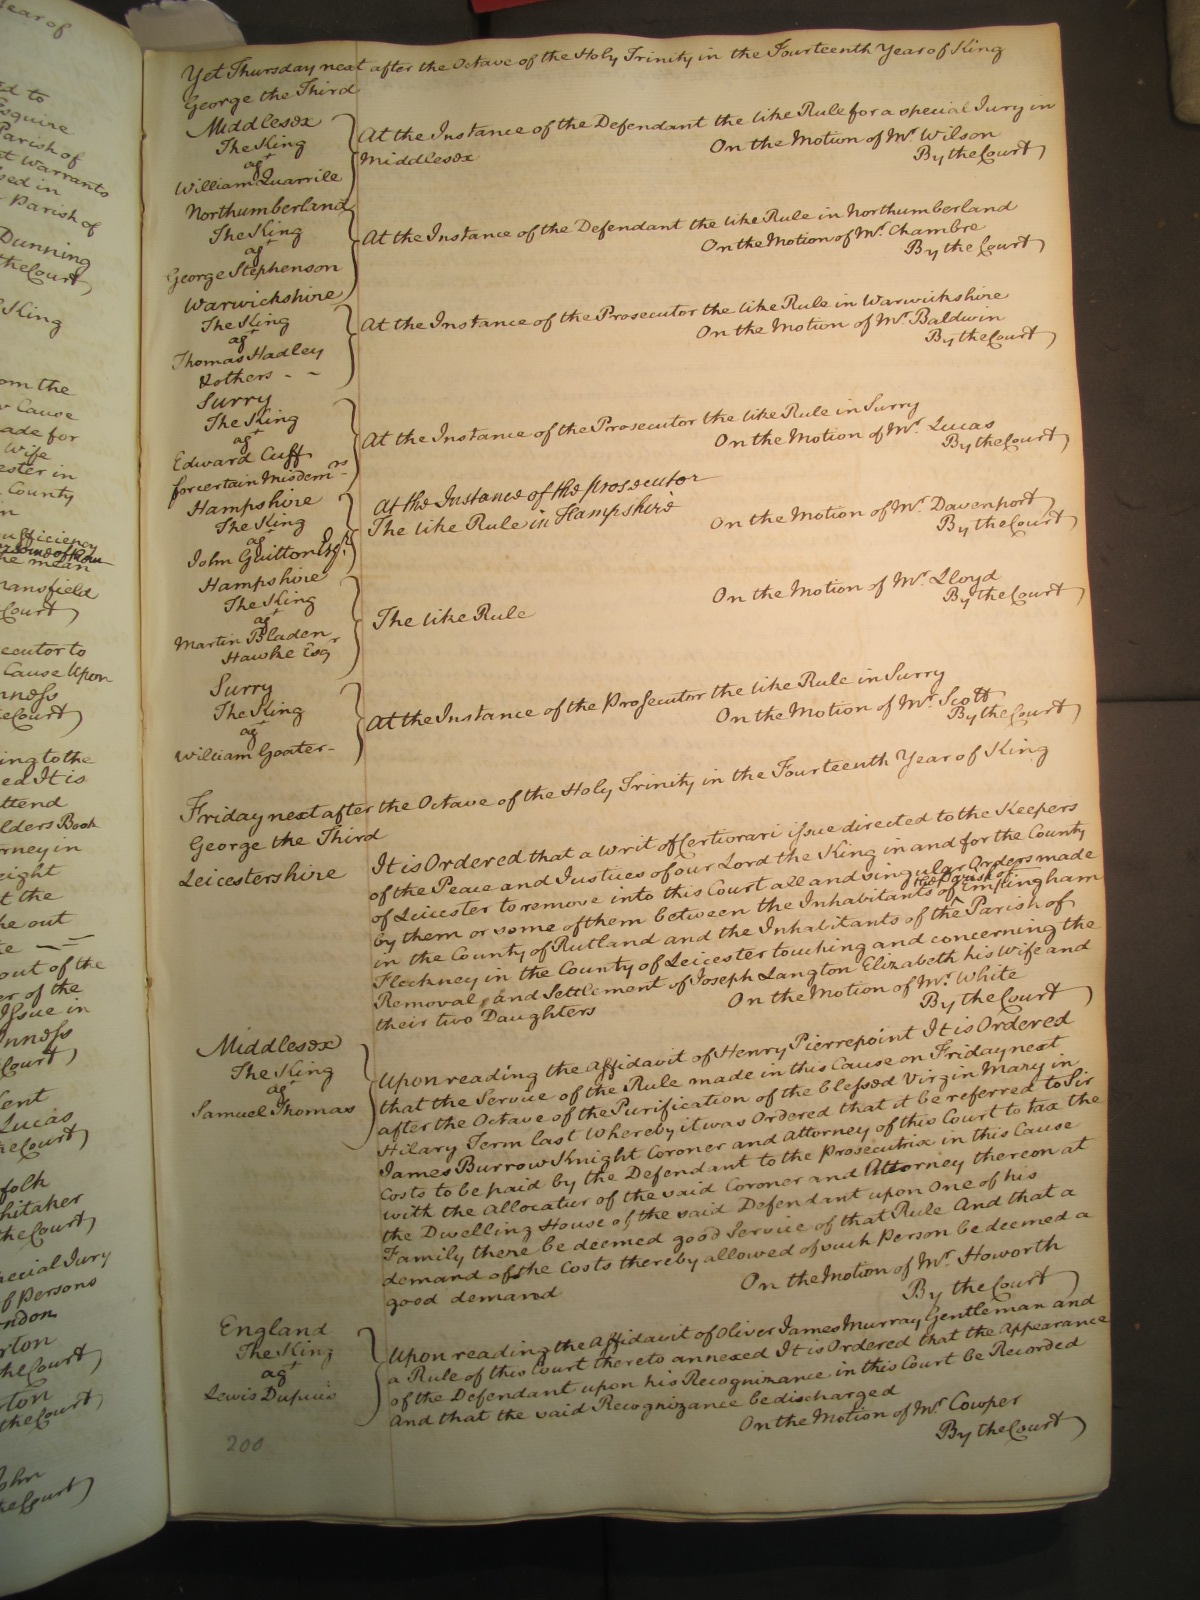 Yet Thursday next after the Octave of the Holy Trinity in the Fourteenth Year of King
George the Third
Middlesex
The King
agt
William Quarrile
At the Instance of the Defendant the like Rule for a special Jury in
Middlesex
On the Motion of Mr. Wilson
By the Court
Northumberland
The King
agt
George Stephenson
At the Instance of the Defendant the like Rule in Northumberland
On the Motion of Mr. Chambre
By the Court
Warwickshire
The King
agt
Thomas Hadley
& others - -
At the Instance of the Prosecutor the like Rule in Warwickshire
On the Motion of Mr. Baldwin
By the Court
Surry
The King
agt
Edward Cuff
for certain Misdemrs
At the Instance of the Prosecutor the like Rule in Surry
On the Motion of Mr. Lucas
By the Court
Hampshire
The King
agt
John Guitton Esqr.
At the Instance of the prosecutor
The like Rule in Hampshire
On the Motion of Mr. Davenport
By the Court
Hampshire
The King
agt
Martin Bladen
Hawke Esqr
The like Rule
On the Motion of Mr. Lloyd
By the Court
Surry
The King
agt
William Goater-
At the Instance of the Prosecutor the like Rule in Surry
On the Motion of Mr. Scott
By the Court
Friday next after the Octave of the Holy Trinity in the Fourteenth Year of King
George the Third
Leicestershire
It is Ordered that a Writ of Certiorari issue directed to the Keepers
of the Peace and Justices of our Lord the King in and for the County
of Leicester to remove into this Court all and singular Orders made
by them or some of them between the Inhabitants of the Parish of Empingham
in the County of Rutland and the Inhabitants of the Parish of
Fleckney in the County of Leicester touching and concerning the
Removal, and Settlement of Joseph Langton Elizabeth his Wife and
their two Daughters
On the Motion of Mr. White
By the Court
Middlesex
The King
agt
Samuel Thomas
Upon reading the Affidavit of Henry Pierrepoint It is Ordered
that the Service of the Rule made in this Cause on Friday next
after the Octave of the Purification of the blessed Virgin Mary in
Hilary Term last Whereby it was Ordered that it be referred to Sir
James Burrow Knight Coroner and Attorney of this Court to tax the
Costs to be paid by the Defendant to the Prosecutrix in this Cause
with the Allocatur of the said Coroner and Attorney thereon at
the Dwelling House of the said Defendant upon One of his
Family there be deemed good Service of that Rule And that a
demand of the Costs thereby allowed of such Person be deemed a
good demand
On the Motion of Mr. Howorth
By the Court
England
The King
agt
Lewis Dupuis
Upon reading the Affidavit of Oliver James Murray Gentleman and
a Rule of this Court thereto annexed It is Ordered that the Appearance
of the Defendant upon his Recognizance in this Court be Recorded
And that the said Recognizance be discharged
On the Motion of Mr. Cowper
By the Court
200